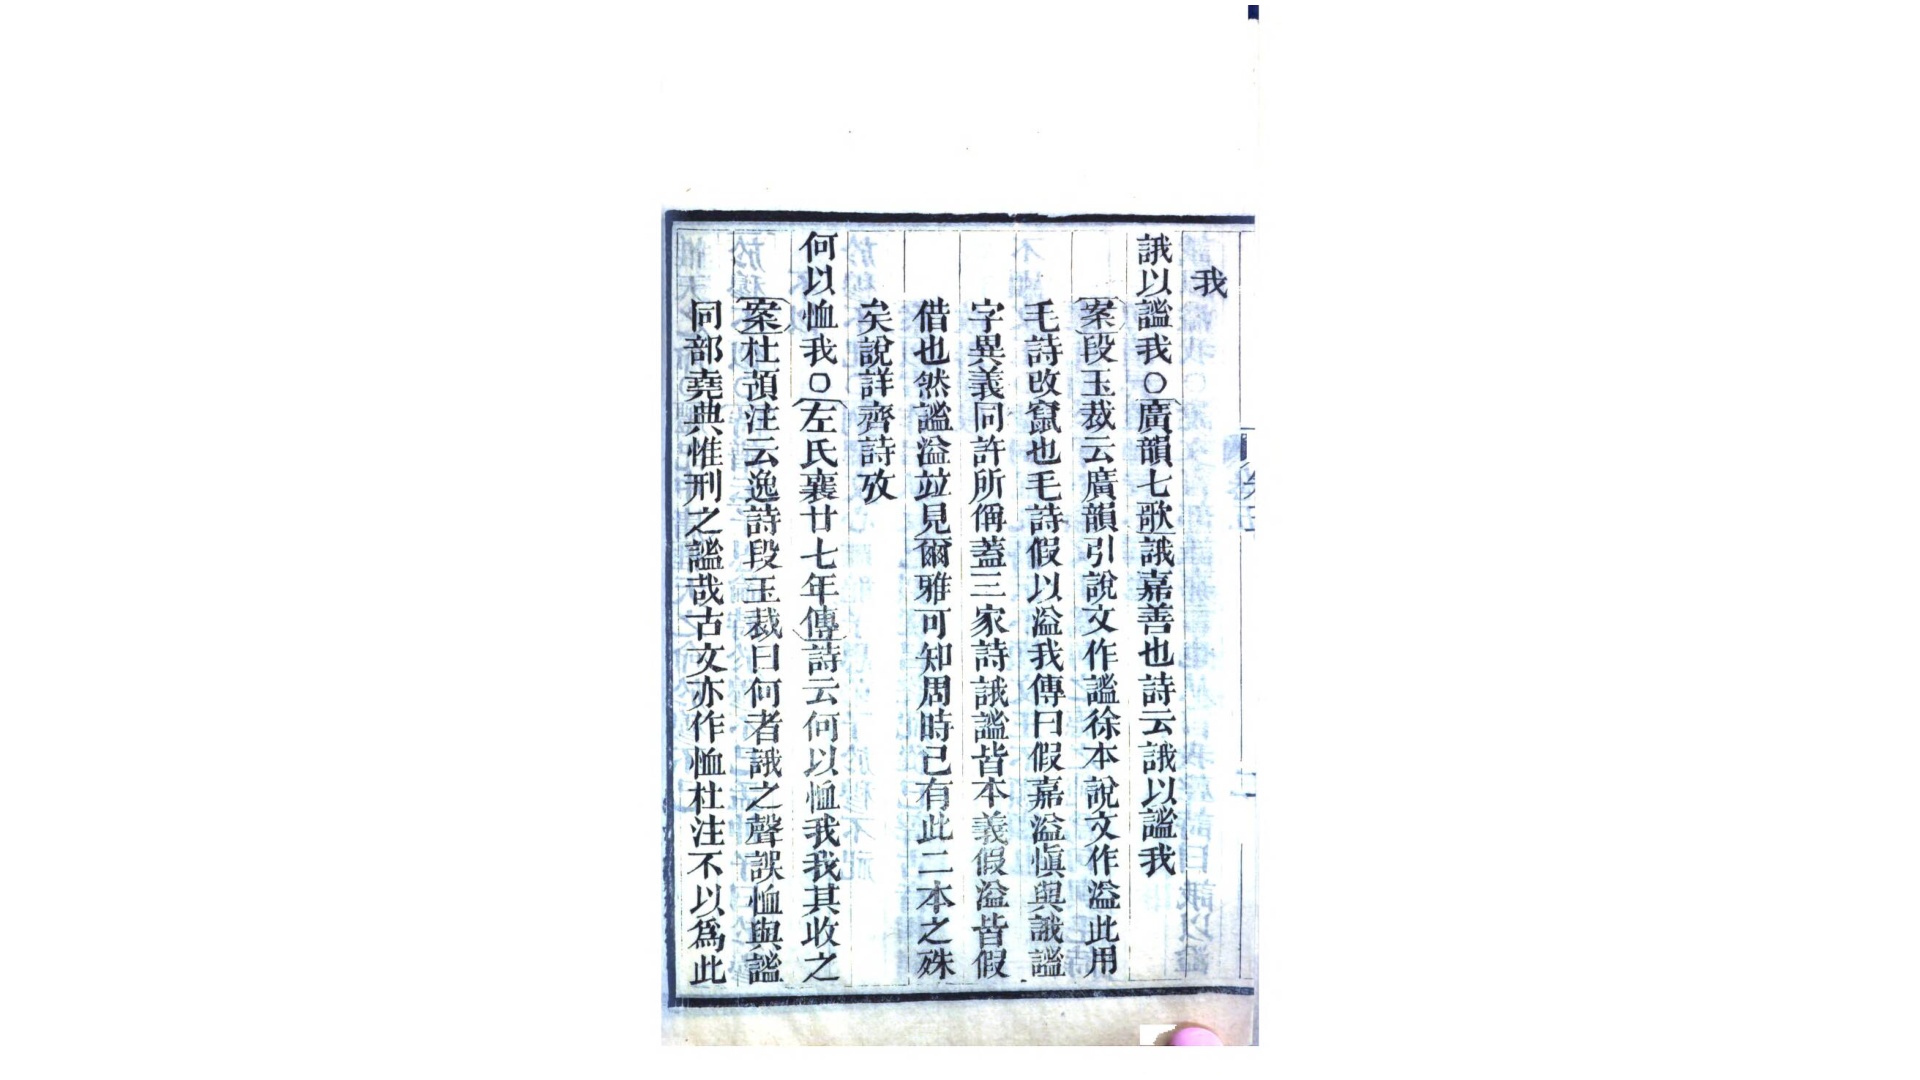 我
誐以謐我○廣韻七歌誐嘉善也詩云誐以謐我
案段玉裁云廣韻引說文作謐徐本說文作溢此用
毛詩改竄也毛詩假以溢我傳曰假嘉溢愼與誐謐
字異義同許所偁蓋三家詩誐謐皆本義假溢皆假
借也然謐溢竝見爾雅可知周時已有此二本之殊
矣說詳齊詩攷
何以恤我○左氏襄廿七年傳詩云何以恤我我其收之
案杜預注云逸詩段玉裁曰何者誐之聲誤恤與謐
同部堯典惟刑之謐哉古文亦作恤杜注不以爲此